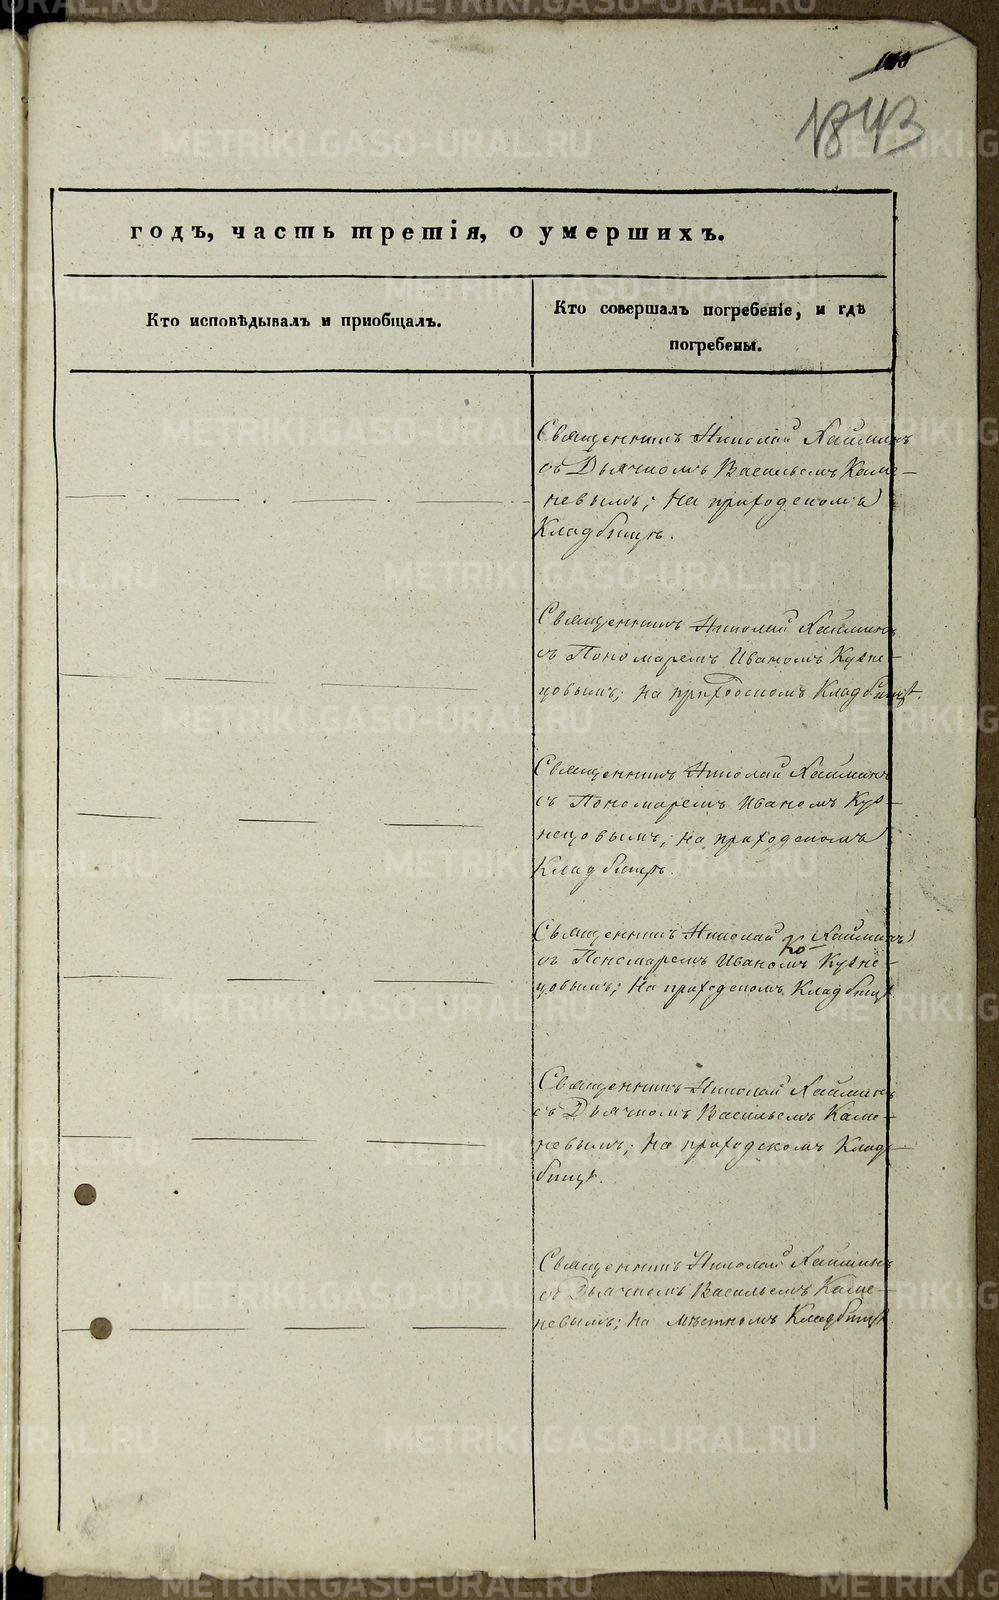 1843
годъ, часть третія, о умершихъ.
Кто исповѣдывалъ и пріобщалъ.
Кто совершалъ погребеніе, и гдѣ
погребены.
Священникъ Николай
съ Дьячкомъ Васильемъ Каме-
невымъ; На приходскомъ
Кладбищѣ.
Священникъ Николай
съ Пономаремъ Иваномъ Кузне-
цовымъ; на приходскомъ Кладбищѣ.
Священникъ Николай
съ Пономаремъ Иваномъ Куз-
нецовымъ; на приходскомъ
Кладбищѣ.
Священникъ Николай
съ Пономаремъ Иваномъ Кузне-
цовымъ; На приходскомъ Кладбищѣ
Священникъ Николай
съ Дьячкомъ Васильемъ Каме-
невымъ; На приходскомъ Клад-
бищѣ.
Священникъ Николай
съ Дьячкомъ Васильемъ Каме-
невымъ; На мѣстномъ Кладбищѣ
METRIKI.GASO-URAL.RU